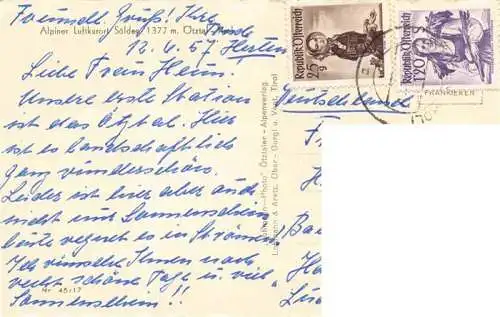 Freundl. Gruß! Ihre
Alpiner Luftkurort Sölden, 1377 m. Ötztal, Tirol
12.6.57
Liebe Frein Heim.
Unsere erste Station
ist das Ötztal. Hier
ist es landschaftlich
ganz wunderschön.
Leider ist hier aber auch
nicht viel Sonnenschein
heute regnet es in Strömen!
Ich wünsche Ihnen noch
recht schöne Tage u. viel
Sonnenschein!!
Nr. 45/17
Photo" Ötztaler - Alpenverlag
Lohmann & Aretz, Ober - Gurgl u. Vent, Tirol
Republik Österreich
25 g
Republik Österreich
1.70
FRANKIEREN
Deutschland
F
H
Ba
H